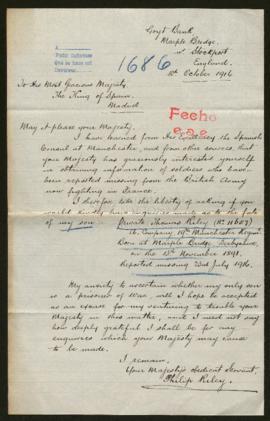 Goyt Bank,
Marple Bridge,
Nr Stockport
England.
October 1916
1686
To His Most Gracious Majesty,
The King of Spain,
Madrid
Fecho
May it please your Majesty,
I have learned from His Excellency the Spanish
Consul at Manchester, and from other sources, that
your Majesty has graciously interested yourself
in obtaining information of soldiers who have
been reported missing from the British Army
now fighting in France.
I therefore take the liberty of asking if you
would kindly have enquiries made as to the fate
of my son Private Thomas Riley
Company 19th Manchester Regim
Born at Marple Bridge, Derbyshire,
on the 15th November 1891.
Reported missing 23rd July 1916.
My anxiety to ascertain whether my only son
is a prisoner of War, will I hope be accepted
as an excuse for my venturing to trouble your
Majesty in this matter, and I need not say
how deeply grateful I shall be for any
enquiries which your Majesty may cause
to be made.
I remain,
Your Majesty's Obedient Servant,
Philip Riley.